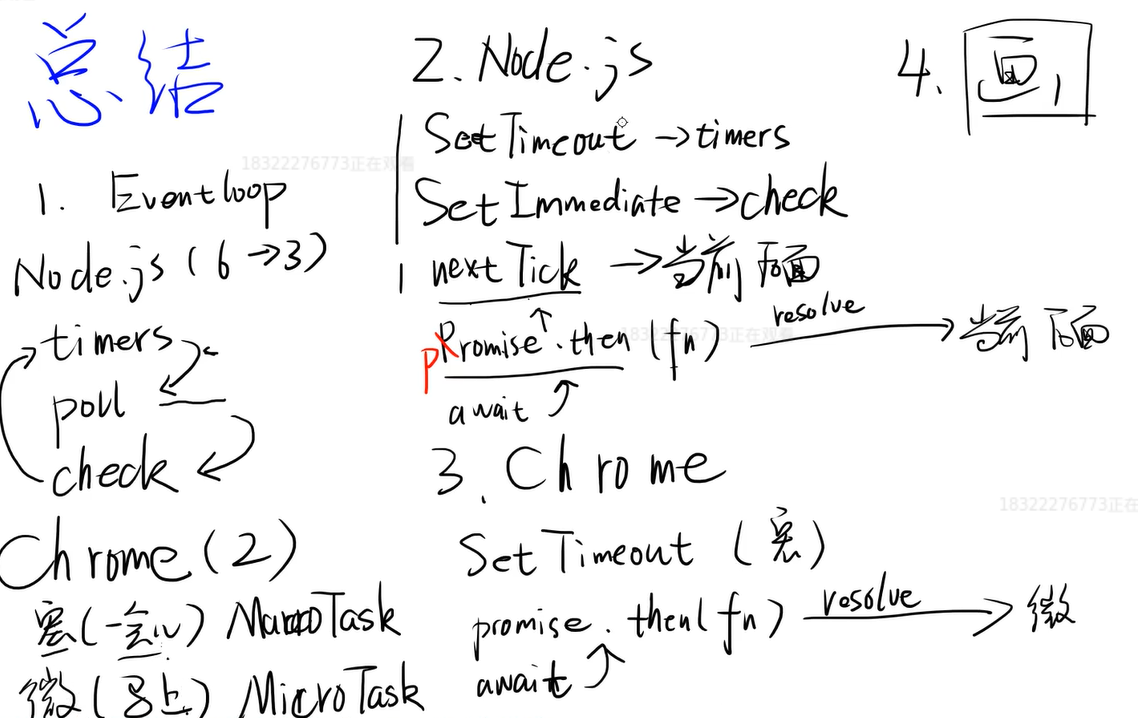 总结
1. Eventloop
Node.js (6→3)
timers
poll
check
Chrome (2)
宏(一会儿) MacroTask
微(马上) MicroTask
2. Node.js
SetTimeout →timers
SetImmediate →check
nextTick →当前后面
promise.then(fn) resolve→当前后面
await
3. Chrome
SetTimeout (宏)
promise.then(fn) resolve→微
await
4. 画
18322276773正在观看
18322276773正在观看
18322276773正在